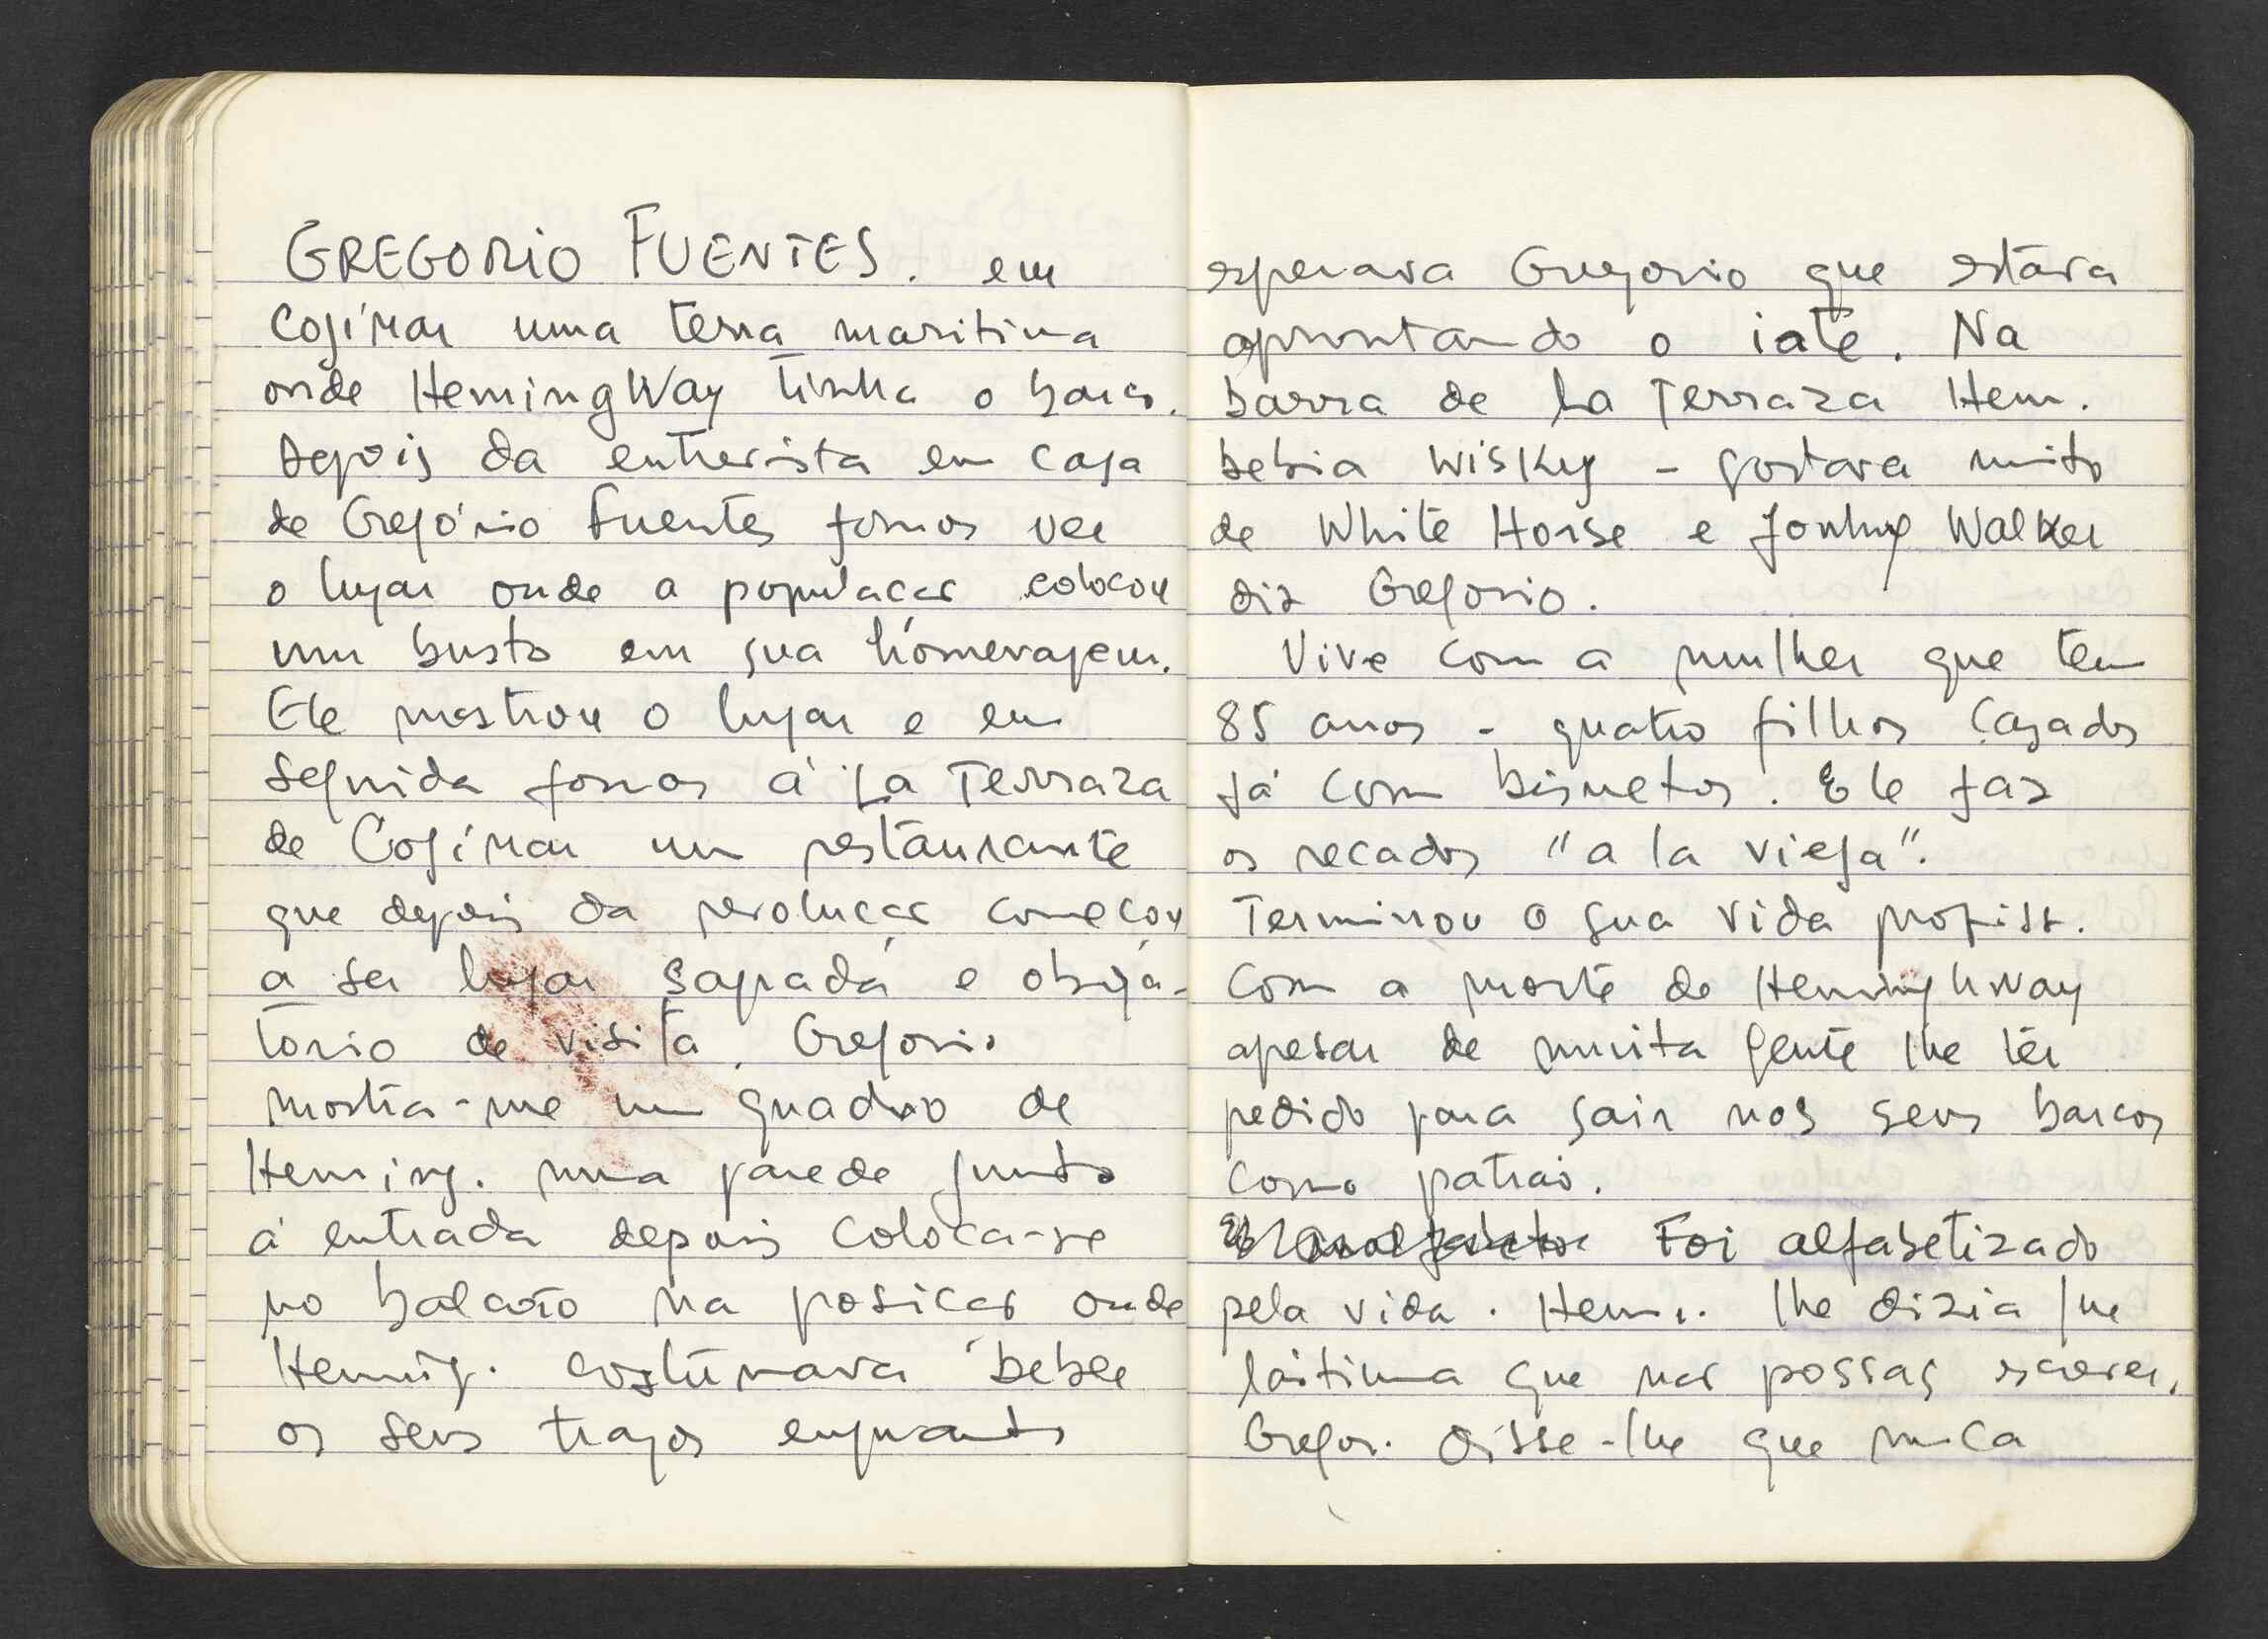 GREGORIO FUENTES. em
Cojímar uma terra maritima
onde HemingWay tinha o barco.
Depois da entrevista em casa
de Gregório Fuentes fomos ver
o lugar onde a populacão colocou
um busto em sua hómenagem.
Ele mostrou o lugar e em
seguida fomos á La Terraza
de Cojímar um restaurante
que depois da revolucão comecou
a ser lugar sagrada e obriga-
torio de visita. Gregorio
mostra-me um quadro de
Heming. numa parede junto
á entrada depois coloca-se
no balcão na posicão onde
Heming. costumava beber
os seus tragos enquanto
esperava Gregorio que estava
aprontando o iate. Na
barra de La Terraza Hem.
bebia wisky - gostava muito
de White Horse e Jonhy Walker
diz Gregorio.
Vive com a mulher que tem
85 anos - quatro filhos casados
já com bisnetos. Ele faz
os recados "a la vieja".
Terminou a sua vida profiss.
com a morte de Heminghway
apesar de muita gente lhe ter
pedido para sair nos seus barcos
como patrão.
Analfabeto Foi alfabetizado
pela vida. Hem.. lhe dizia que
lástima que não possas escrever.
Gregor. disse-lhe que nunca